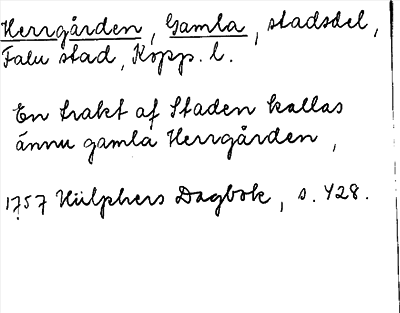 Herrgården, Gamla, stadsdel,
Falu stad, Kopp. l.
En trakt af Staden kallas
ännu gamla Herrgården,
1757 Hülphers Dagbok, s. 428.